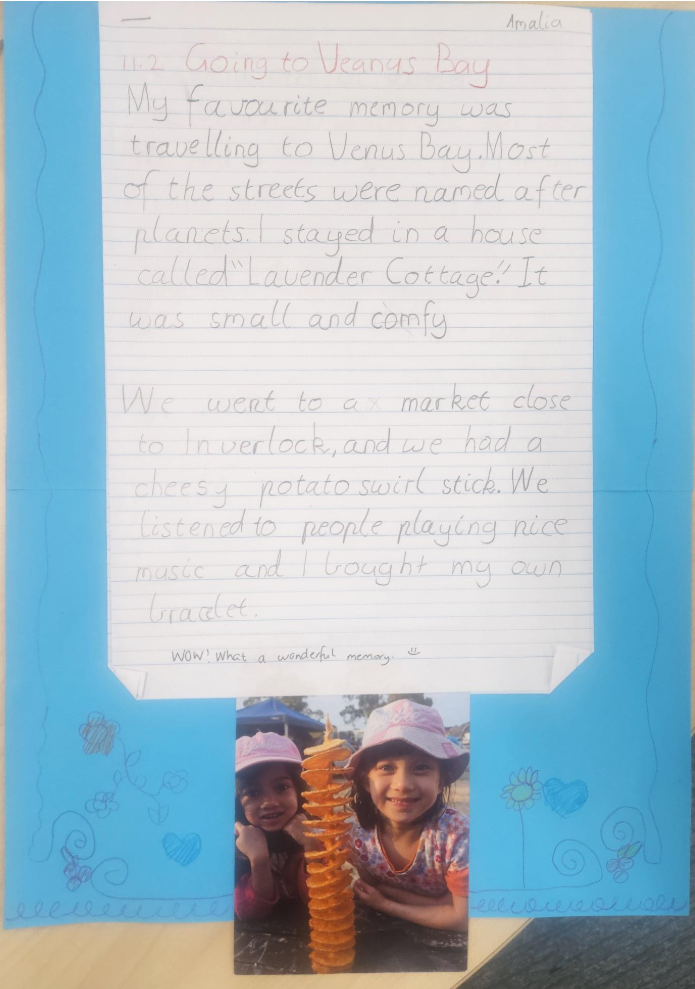 Amalia
11.2 Going to Veanus Bay
My favourite memory was
travelling to Venus Bay. Most
of the streets were named after
planets. I stayed in a house
called "Lavender Cottage." It
was small and comfy
We went to a market close
to Inverlock, and we had a
cheesy potato swirl stick. We
listened to people playing nice
music and I bought my own
braclet.
WOW! What a wonderful memory. ☺